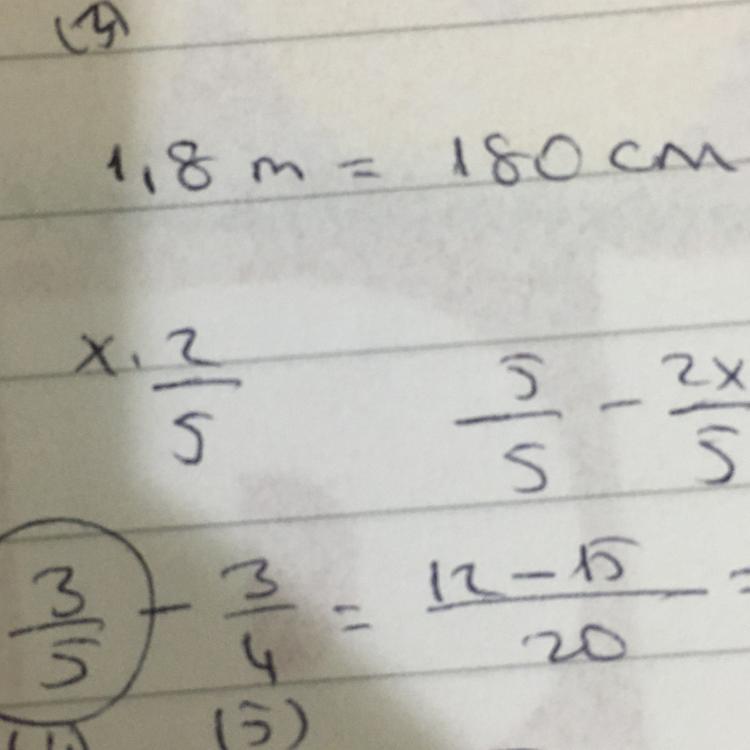 (3)
1,8 m = 180 cm
x . 2/5 5/5 - 2x/5
3/5 - 3/4 = 12 - 15/20 =
(5)